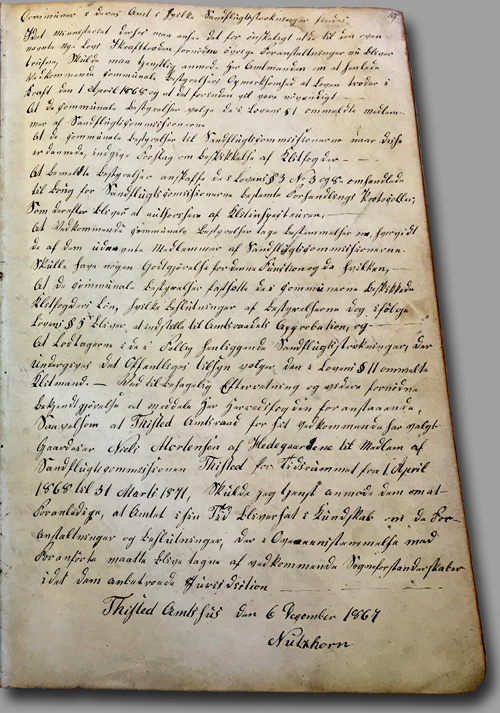 Communer i deres Amt i hvilke Sandflugtsstrækninger findes.
Idet Ministeriet derhos maa ansee det for ønskeligt at de til den oven
nævnte nye Lovs Ikrafttræden fornødne øvrige Foranstaltninger nu bliver
trufne, skulde man tjenstligt anmode Hr Amtmanden om at henlede
Vedkommende communale Bestyrelsers Opmærksomhed at Loven træder i
Kraft den 1 April 1868 og at det forinden vil være nødvendigt
At de communale Bestyrelser vælge de i Lovens § 1 ommeldte Medlem-
mer af Sandflugtscommissionerne
At de communale Bestyrelser til Sandflugtscommissionerne naar disse
er dannede, indgive Forslag om Beskikkelse af Klitfogder —
At bemeldte Bestyrelser anskaffe de i Lovens § 3 Nr. 3 og 8 omhandlede
til Brug for Sandflugtscommissionerne bestemte Forhandlings Protocoller,
som derefter bliver at authorisere af Klitinspecteuren, —
At Vedkommende communale Bestyrelser tage Bestemmelser om, hvorvidt
de af dem udnævnte Medlemmer af Sandflugtscommissionerne
skulle have nogen Godtgjørelse for denne Function og da hvilken, —
At de communale Bestyrelser fastsætte de i Communerne beskikkede
Klitfogders Løn, hvilke Beslutninger af Bestyrelserne dog ifølge
Lovens § 5 bliver at indstille til Amtsraadets Approbation, og —
At Lodtagerne i de i Fællig henliggende Sandflugtsstrækninger, der
undergives det Offentliges Tilsyn vælger den i Lovens § 11 ommeldte
Klitmand. — Ved til behagelig Efterretning og videre fornødne
Bekjendtgjørelse at meddele Hr Herredsfogden foranstaaende,
saavelsom at Thisted Amtsraad for sit Vedkommende har valgt
Gaardeier Niels Mortensen af Hedegaardene til Medlem af
Sandflugtscommissionen Thisted for Tidsrummet fra 1 April
1868 til 31 Marts 1871, skulde jeg tjenst anmode dem om at
foranledige, at Amtet i sin Tid bliver sat i Kundskab om de For-
anstaltninger og Beslutninger, der i Overeensstemmelse med
Foranførte maatte blive tagne af vedkommende Sogneforstanderskaber
i det dem anbetroede Jurisdiction
Thisted Amtshus den 6 December 1867
Nutzhorn